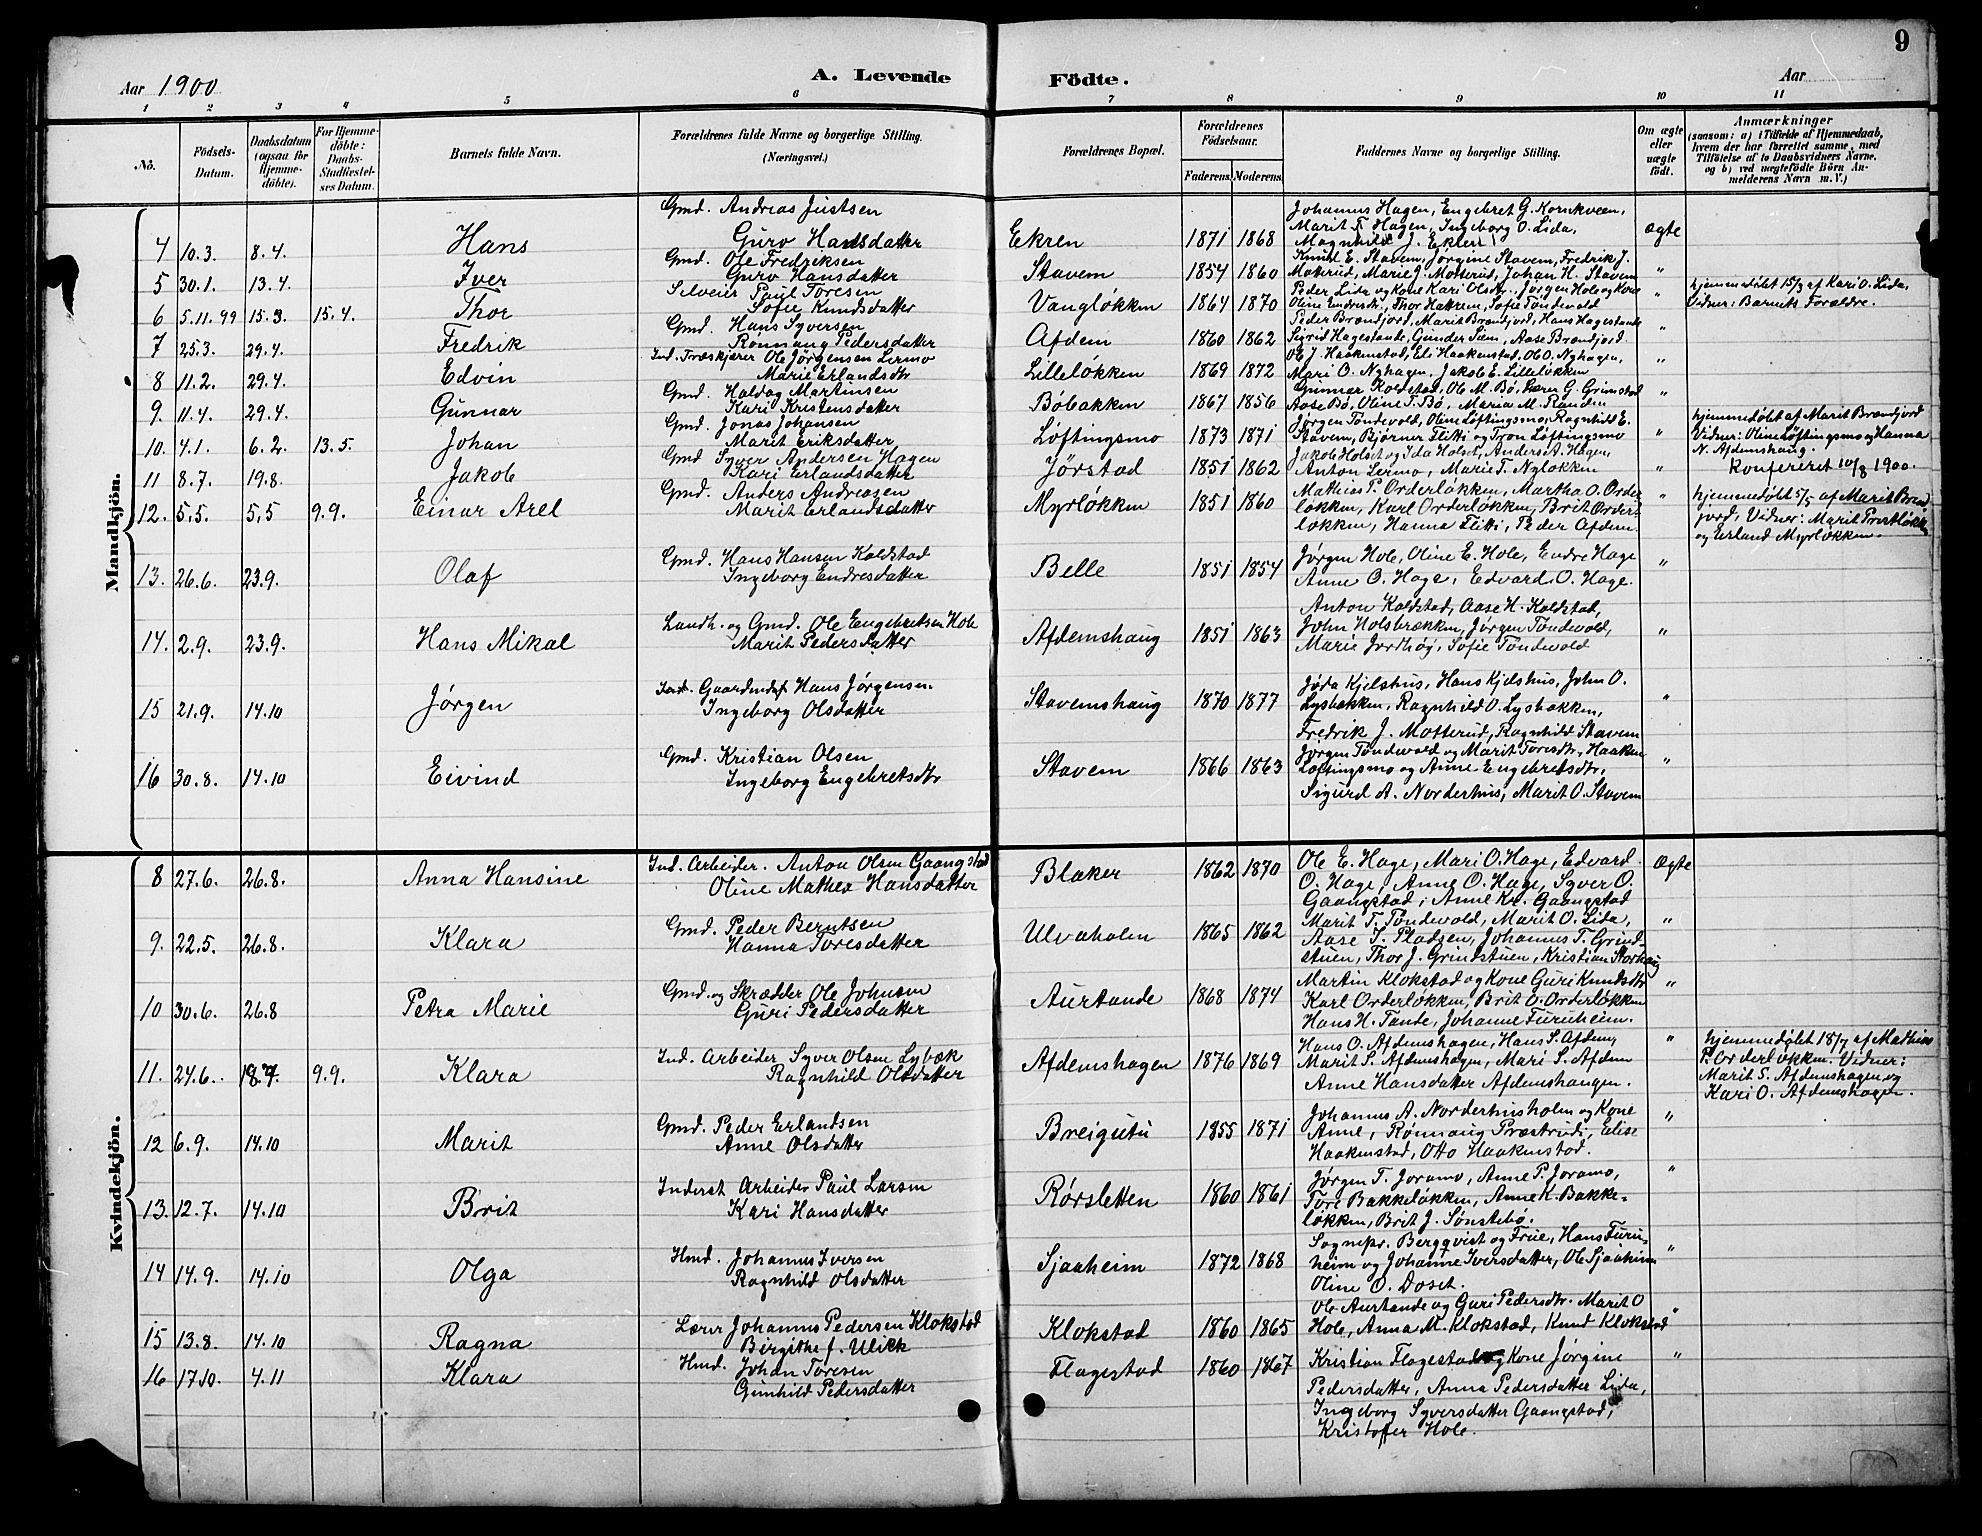 9
Aar 1900
A. Levende Födte.
Aar
1 2 3 4 5 6 7 8 9 10 11
No.
Födsels-Datum.
Daabsdatum (ogsaa for Hjemmedöbte).
For Hjemmedöbte: Daabs-Stadfæstelses Datum.
Barnets fulde Navn.
Forældrenes fulde Navne og borgerlige Stilling. (Næringsvei.)
Forældrenes Bopæl.
Forældrenes Födselsaar.
Faderens. Moderens.
Faddernes Navne og borgerlige Stilling.
Om ægte eller uægte födt.
Anmærkninger
(saasom: a) i Tilfælde af Hjemmedaab, hvem der har forrettet samme, med Tilföielse af to Daabsvidners Navne, og b) ved uægtefödte Börn Anmelderens Navn m. V.)
Mandkjön.
4 10.3. 8.4. Hans
Gmd. Andreas Justsen
Guro Hansdatter
Ekren 1871 1868
Johannes Hagen, Engebret G. Kornkveen,
Marit F. Hagen, Ingeborg O. Lida,
Magnhild J. Ekren
ægte
5 30.1. 13.4. Iver
Gmd. Ole Fredriksen
Guro Hansdatter
Stavem 1854 1860
Knut E. Stavem, Jørgine Stavem, Fredrik J.
Motterud, Marie J. Motterud, Johan H. Stavem
"
6 5.11.99 15.3. 15.4. Thor
Selveier Paul Toresen
Sofie Knudsdatter
Vangløkken 1864 1870
Peder Lida og Kone Kari Olsdtr., Jørgen Hole og Kone
Oline Endresdtr, Thor Hattrem, Sofie Tondevold
"
hjemmedøbt 15/3 af Kari O. Lida,
Vidner: Barnets Forældre.
7 25.3. 29.4. Fredrik
Gmd. Hans Syversen
Rønnaug Pedersdatter
Afdem 1860 1862
Peder Brændjord, Marit Brændjord, Hans Hagestande
Sigrid Hagestande, Gunder Sæm, Aase Brændjord
"
8 11.2. 29.4. Edvin
Ind. Træskjærer Ole Jörgensen Lermo
Marie Erlandsdtr
Lilleløkken 1869 1872
Ole J. Haakenstad, Eli Haakenstad, Ole O. Nyhagen,
Mari O. Nyhagen, Jakob E. Lilleløkken
"
9. 11.4. 29.4. Gunnar
Gmd. Haldog Martinsen
Kari Kristensdatter
Bøbakken 1867 1856
Gunnar Koldstad, Ole M. Bø, Karen G. Grimstad
Aase Bø, Oline T. Bø, Maria M. Randen
"
10. 4.1. 6.2. 13.5. Johan
Gmd. Jonas Johansen
Marit Eriksdatter
Løftingsmo 1873 1871
Jørgen Tondevold, Oline Løftingsmo, Ragnhild E.
Stavem, Bjørner Flitti og Tron Løftingsmo
"
hjemmedøbt af Marit Brændjord
Vidner: Oline Løftingsmo og Hanna
N. Afdemshaug.
11 8.7. 19.8. Jakob
Gmd Syver Andersen Hagen
Kari Erlandsdatter
Jørstad 1851 1862
Jakob Holset og Ida Holset, Anders A. Hagen,
Anton Lermo, Marie T. Nyløkken
"
Konfereret 10/8 1900.
12. 5.5. 5.5 9.9. Einar Arel
Gmd. Anders Andreasen
Marit Erlandsdatter
Myrløkken 1851 1860
Mathias P. Orderløkken, Martha O. Order
løkken, Karl Orderløkken, Brit Order-
løkken, Hanna Flitti, Peder Afdem.
"
hjemmedøbt 5/5 af Marit Brænd
jord, Vidner: Marit Prestløkk
og Erland Myrløkken.
13. 26.6. 23.9. Olaf
Gmd. Hans Hansen Koldstad
Ingeborg Endresdatter
Belle 1851 1854
Jørgen Hole, Oline E. Hole, Endre Hage
Anne O. Hage, Edvard O. Hage.
"
14. 2.9. 23.9. Hans Mikal
Landh. og Gmd. Ole Engebretsen Hole
Marit Pedersdatter
Afdemshaug 1851 1863
Anton Koldstad, Aase H. Koldstad,
John Holsbrøkken, Jørgen Tondevold,
Marie Jorthøg, Sofie Tondevold
"
15 21.9. 14.10 Jørgen
Gaardmds Hans Jørgensen
Ingeborg Olsdatter
Stavemshaug 1870 1877
Jøda Kjelshus, Hans Kjelshus, John O.
Lysbakken, Ragnhild O. Lysbakken,
Fredrik J. Motterud, Ragnhild Stavem
"
16 30.8. 14.10 Eivind
Gmd. Kristian Olsen
Ingeborg Engebretsdtr
Stavem 1866 1863
Jørgen Tondevold og Marit Toresdtr, Haaken
Løftingsmo og Anne Engebretsdtr,
Sigurd A. Norderhus, Marit O. Stavem
"
Kvindekjön.
8 27.6. 26.8. Anna Hansine
Ind. Arbeider. Anton Olsen Gaangstad
Oline Mathea Hansdatter
Blaker 1862 1870
Ole E. Hage, Mari O. Hage, Edvard
O. Hage, Anne O. Hage, Syver O.
Gaangstad, Anne Kr. Gaangstad
Ægte
9. 22.5. 26.8. Klara
Gmd. Peder Berntsen
Hanna Toresdatter
Ulvaholm 1865 1862
Marit T. Tondevold, Marit O. Lida,
Aase T. Pladsen, Johannes T. Grind-
stuen, Thor J. Grindstuen, Kristian Storhaug
"
10 30.6. 26.8 Petra Marie
Gmd. og Skrædder Ole Johnsen
Guri Pedersdatter
Aurtande 1868 1874
Martin Klokstad og Kone Guri Knudsdtr
Karl Orderløkken, Brit O. Orderløkken
Hans H. Tande, Johanne Furuheim.
"
11. 24.6. 18.7. 9.9. Klara
Ind. Arbeider Syver Olsen Lybæk
Ragnhild Olsdatter
Afdemshagen 1876 1869
Hans O. Afdemshagen, Hans S. Afdem,
Marit S. Afdemshagen, Mari S. Afdem
Anne Hansdatter Afdemshaugen.
"
hjemmedøbt 18/7 af Mathias
P. Orderløkken. Vidner:
Marit S. Afdemshagen og
Kari O. Afdemshagen.
12 6.9. 14.10 Marit
Gmd. Peder Erlandsen
Anne Olsdatter
Breigutu 1855 1871
Johannes A. Norderhusholm og Kone
Anne, Rønnaug Præstrud, Elise
Haakenstad, Otto Haakenstad.
"
13. 12.7. 14.10 Brit
Inderst Arbeider Paul Larsen
Kari Hansdatter
Rørsletten 1860 1861
Jørgen T. Joramo, Anne P. Joramo,
Tore Bakkeløkken, Anne K. Bakke-
løkken, Brit J. Sønstebø.
"
14 14.9. 14.10 Olga
Hmd. Johannes Iversen
Ragnhild Olsdatter
Sjaaheim 1872 1868
Sognepr. Bergqvist og Frue, Hans Furu-
heim og Johanne Iversdatter, Ole Sjaaheim
Oline O. Doset.
"
15 13.8. 14.10 Ragna
Lærer Johannes Pedersen Klokstad
Birgithe f. Ulick
Klokstad 1860 1865
Ole Aurtande og Guri Pedersdtr. Marit O
Hole, Anna M. Klokstad, Knud Klokstad
"
16 17.10. 4.11 Klara
Hmd. Johan Toresen
Gunhild Pedersdatter
Flagestad 1860 1867
Kristian Flagestad og Kone Jørgine
Pedersdatter, Anna Pedersdatter Lida,
Ingeborg Syversdatter Gaangstad,
Kristoffer Hole.
"